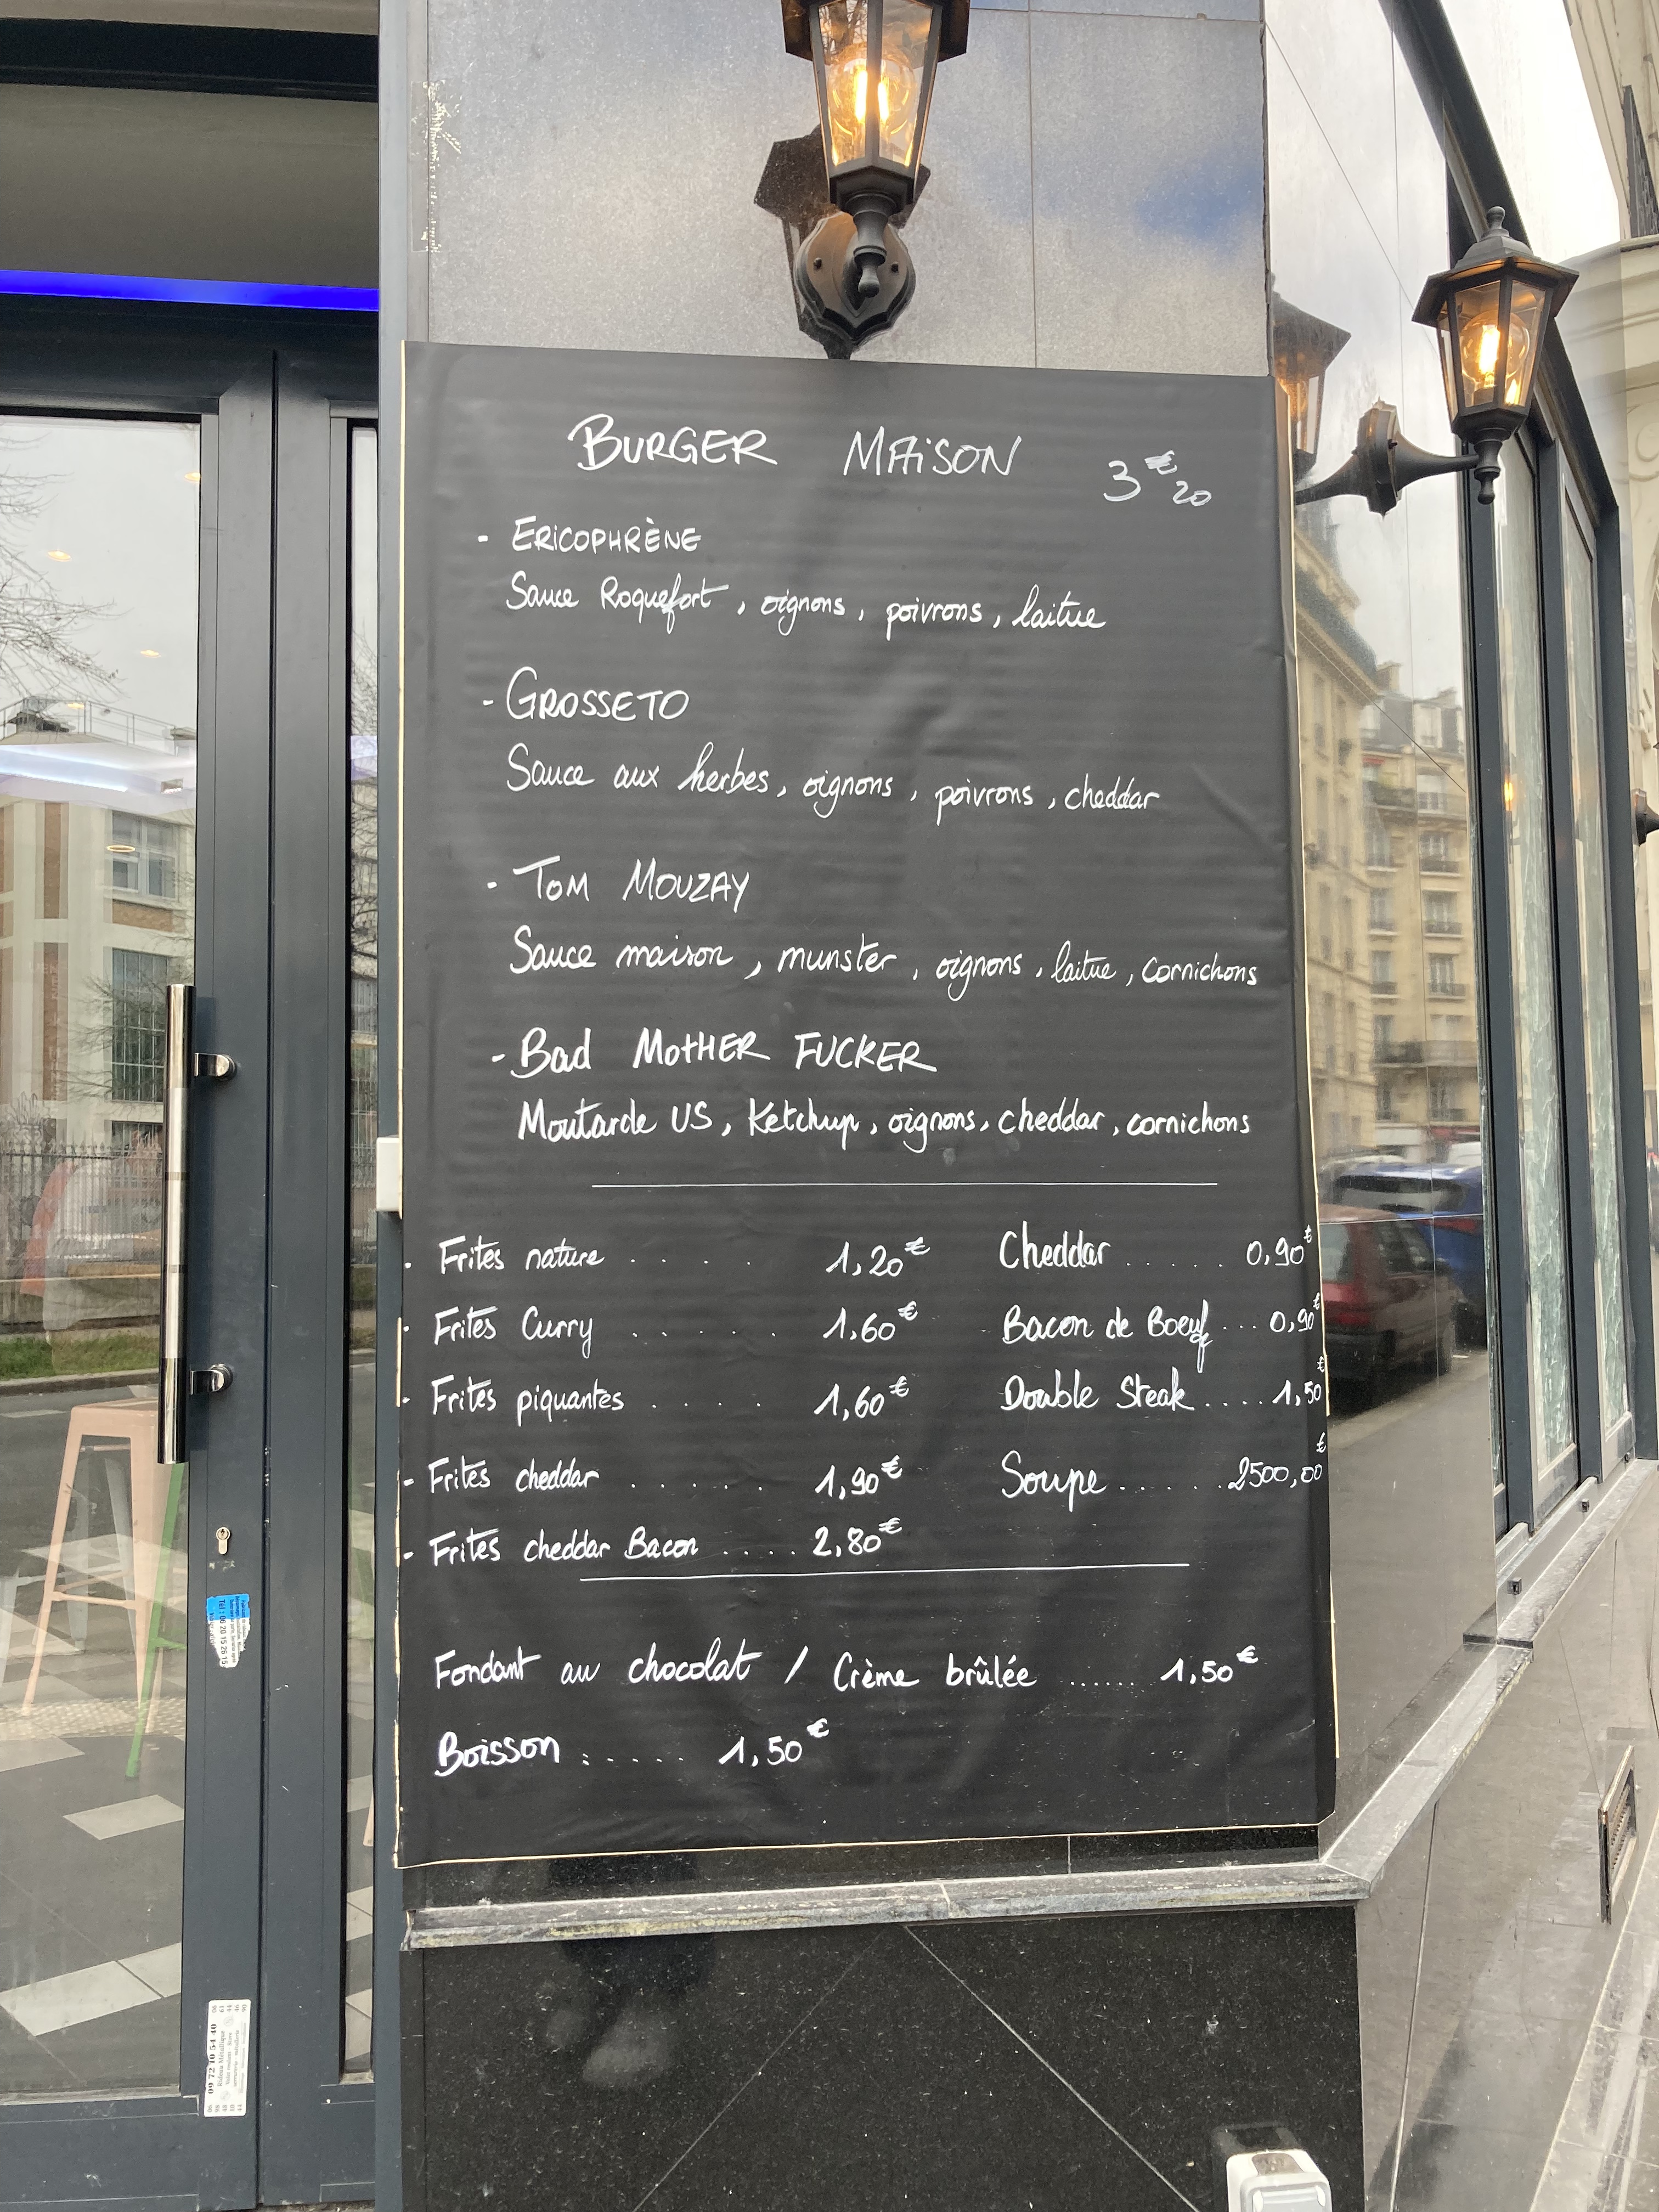 BURGER MAiSON 3€20
- ERiCOPHRÈNE
Sauce Roquefort, oignons, poivrons, laitue
- GROSSETO
Sauce aux herbes, oignons, poivrons, cheddar
- TOM MOUZAY
Sauce maison, munster, oignons, laitue, cornichons
- Bad MOTHER FUCKER
Moutarde US, Ketchup, oignons, cheddar, cornichons
- Frites nature . . . . 1,20€
- Frites Curry . . . . . 1,60€
- Frites piquantes . . . . 1,60€
- Frites cheddar . . . . . 1,90€
- Frites cheddar Bacon . . . . 2,80€
Cheddar . . . . . 0,90€
Bacon de Boeuf . . . 0,90€
Double Steak . . . . 1,50€
Soupe . . . . . . 2500,00€
Fondant au chocolat / Crème brûlée ...... 1,50€
Boisson : ..... 1,50€
09 72 10 54 40